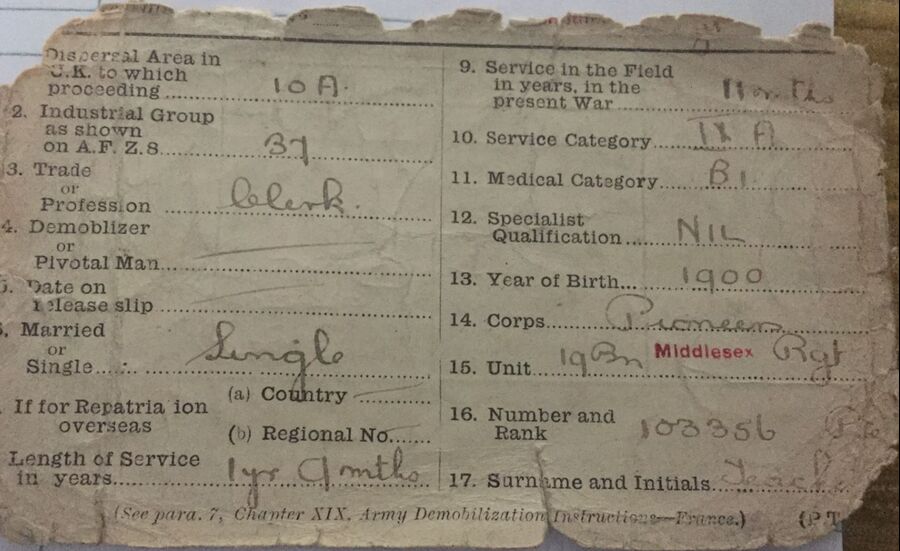 Dispersal Area in
U.K. to which
proceeding 10 A.
2. Industrial Group
as shown
on A.F. Z.8. 37
3. Trade
or
Profession Clerk.
4. Demoblizer
or
Pivotal Man
5. Date on
release slip
6. Married
or
Single Single
If for Repatria ion
overseas
(a) Country
(b) Regional No.
Length of Service
in years. 1 yr 9 mths
9. Service in the Field
in years, in the
present War
10. Service Category IX A
11. Medical Category B1
12. Specialist
Qualification NIL
13. Year of Birth 1900
14. Corps Pioneers
15. Unit 19 Bn Middlesex Rgt
16. Number and
Rank 103356 Pte
17. Surname and Initials
(See para. 7, Chapter XIX. Army Demobilization Instructions—France.)
(P.T.